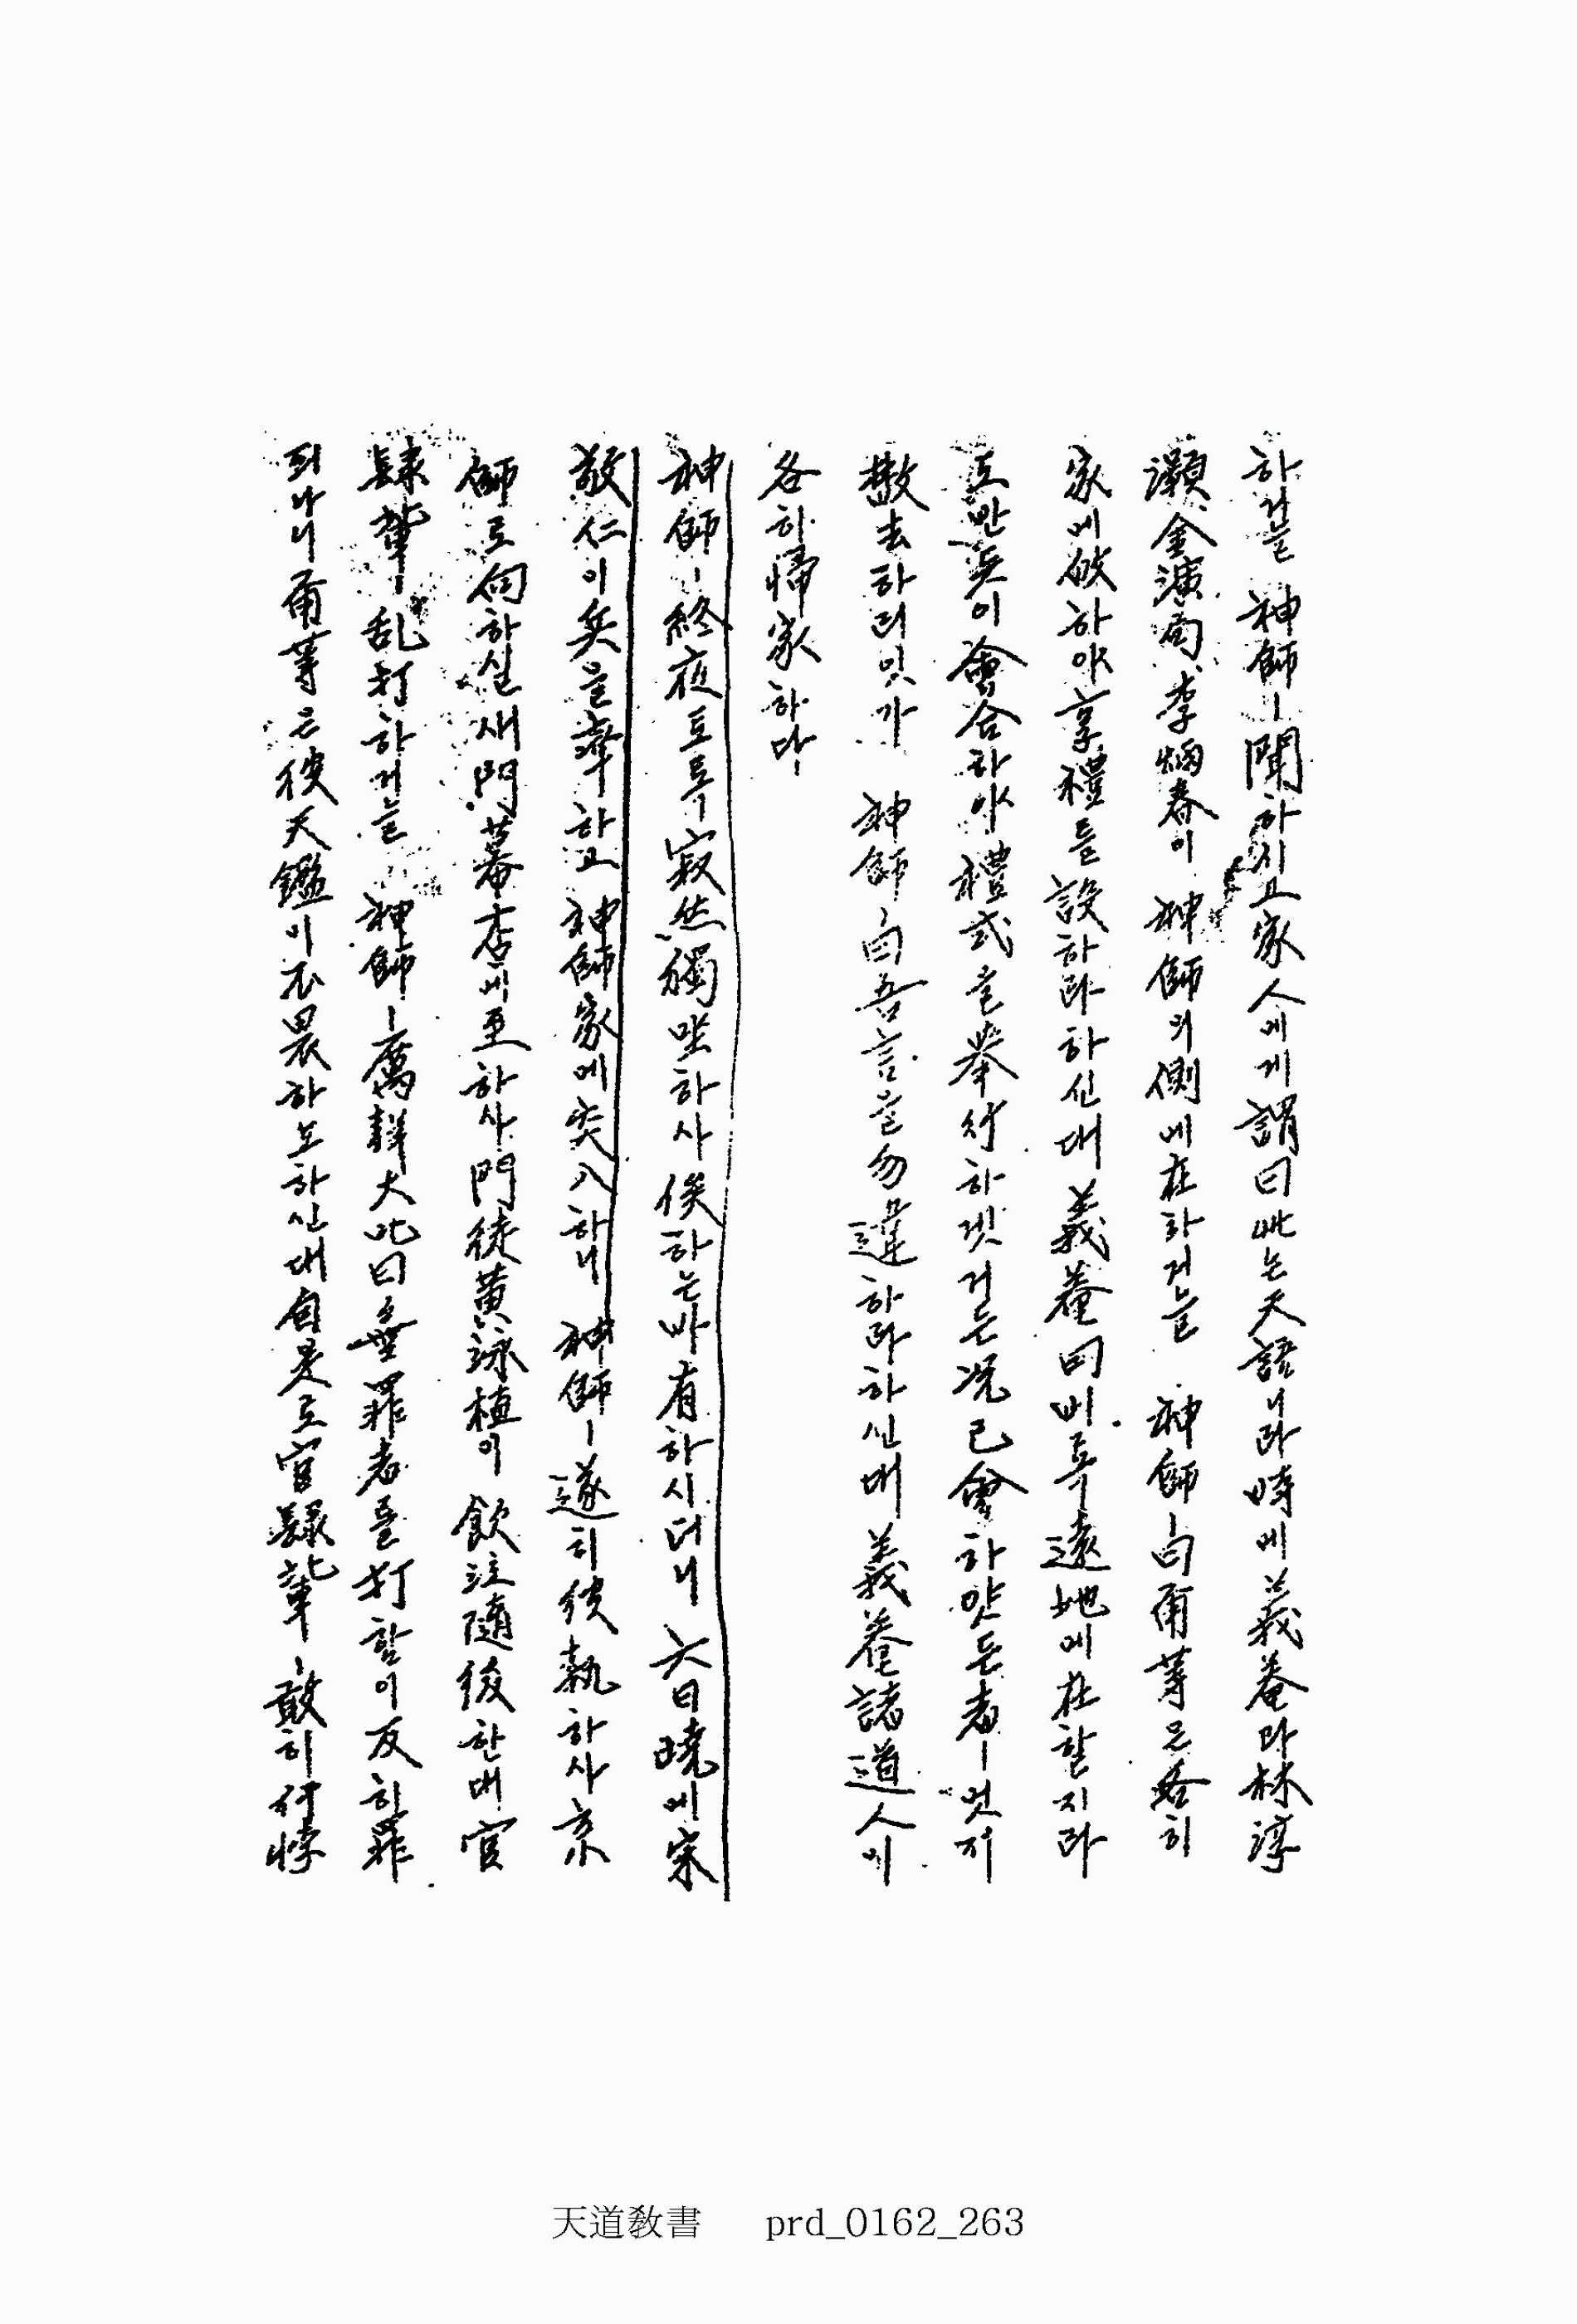 하거늘 神師ㅣ聞하시고家人에게謂曰此는天語니라時에義菴과林淳
灝、金演局、李炳春이 神師의側에在하거늘 神師ㅣ曰爾等은各히
家에歸하야享禮를設하라하신대義菴曰비록遠地에在할지라
도반닷이會合하야禮式을擧行하겟거든況已會하얏든者ㅣ엇지
散去하리잇가 神師ㅣ曰吾言을勿違하라하신대義菴諸道人이
各히歸家하다
神師ㅣ終夜토록寂然獨坐하사俟하는바有하시더니六日曉에宋
敬仁이兵을率하고神師家에突入하니 神師ㅣ遂히彼執하사京
師로向하실새門幕店에至하사門徒黃泳植이 飮泣隨後한대官
隸輩ㅣ乱打하거늘 神師ㅣ厲聲大叱曰無罪者를打함이反히罪
되나니爾等은彼天鑑이不畏하노하신대自是로官隸輩ㅣ敢히行悖
天道敎書 prd_0162_263